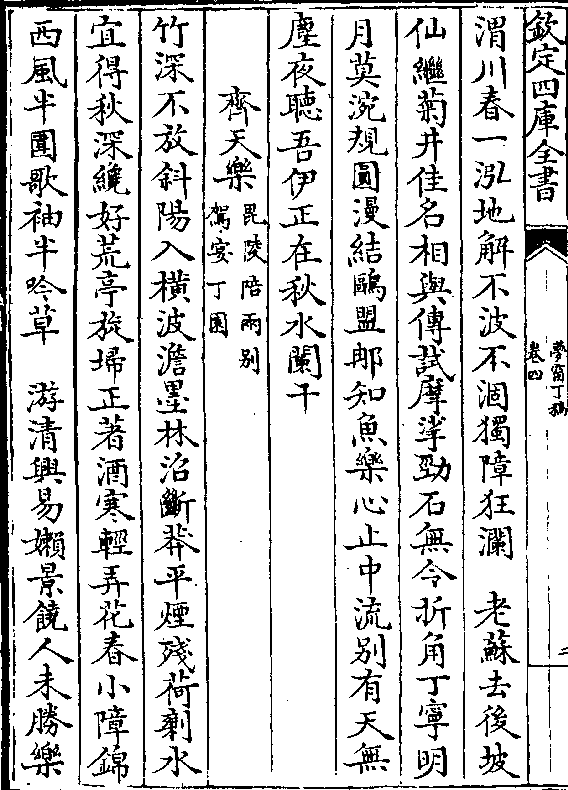 欽定四庫全書
夢窗丁稿
卷四
二
渭川春一泓地解不波不涸獨障狂瀾　老蘇去後坡
仙繼菊井佳名相與傳試摩挲勁石無令折角丁寧明
月莫浼規圓漫結鷗盟那知魚樂心止中流别有天無
塵夜聽吾伊正在秋水闌干
齊天樂 毘陵陪兩别
駕宴丁園
竹深不放斜陽入橫波澹墨林沼斷莽平煙殘荷剩水
宜得秋深纔好荒亭旋埽正著酒寒輕弄花春小障錦
西風半圍歌袖半吟草　游清興易嬾景饒人未勝樂